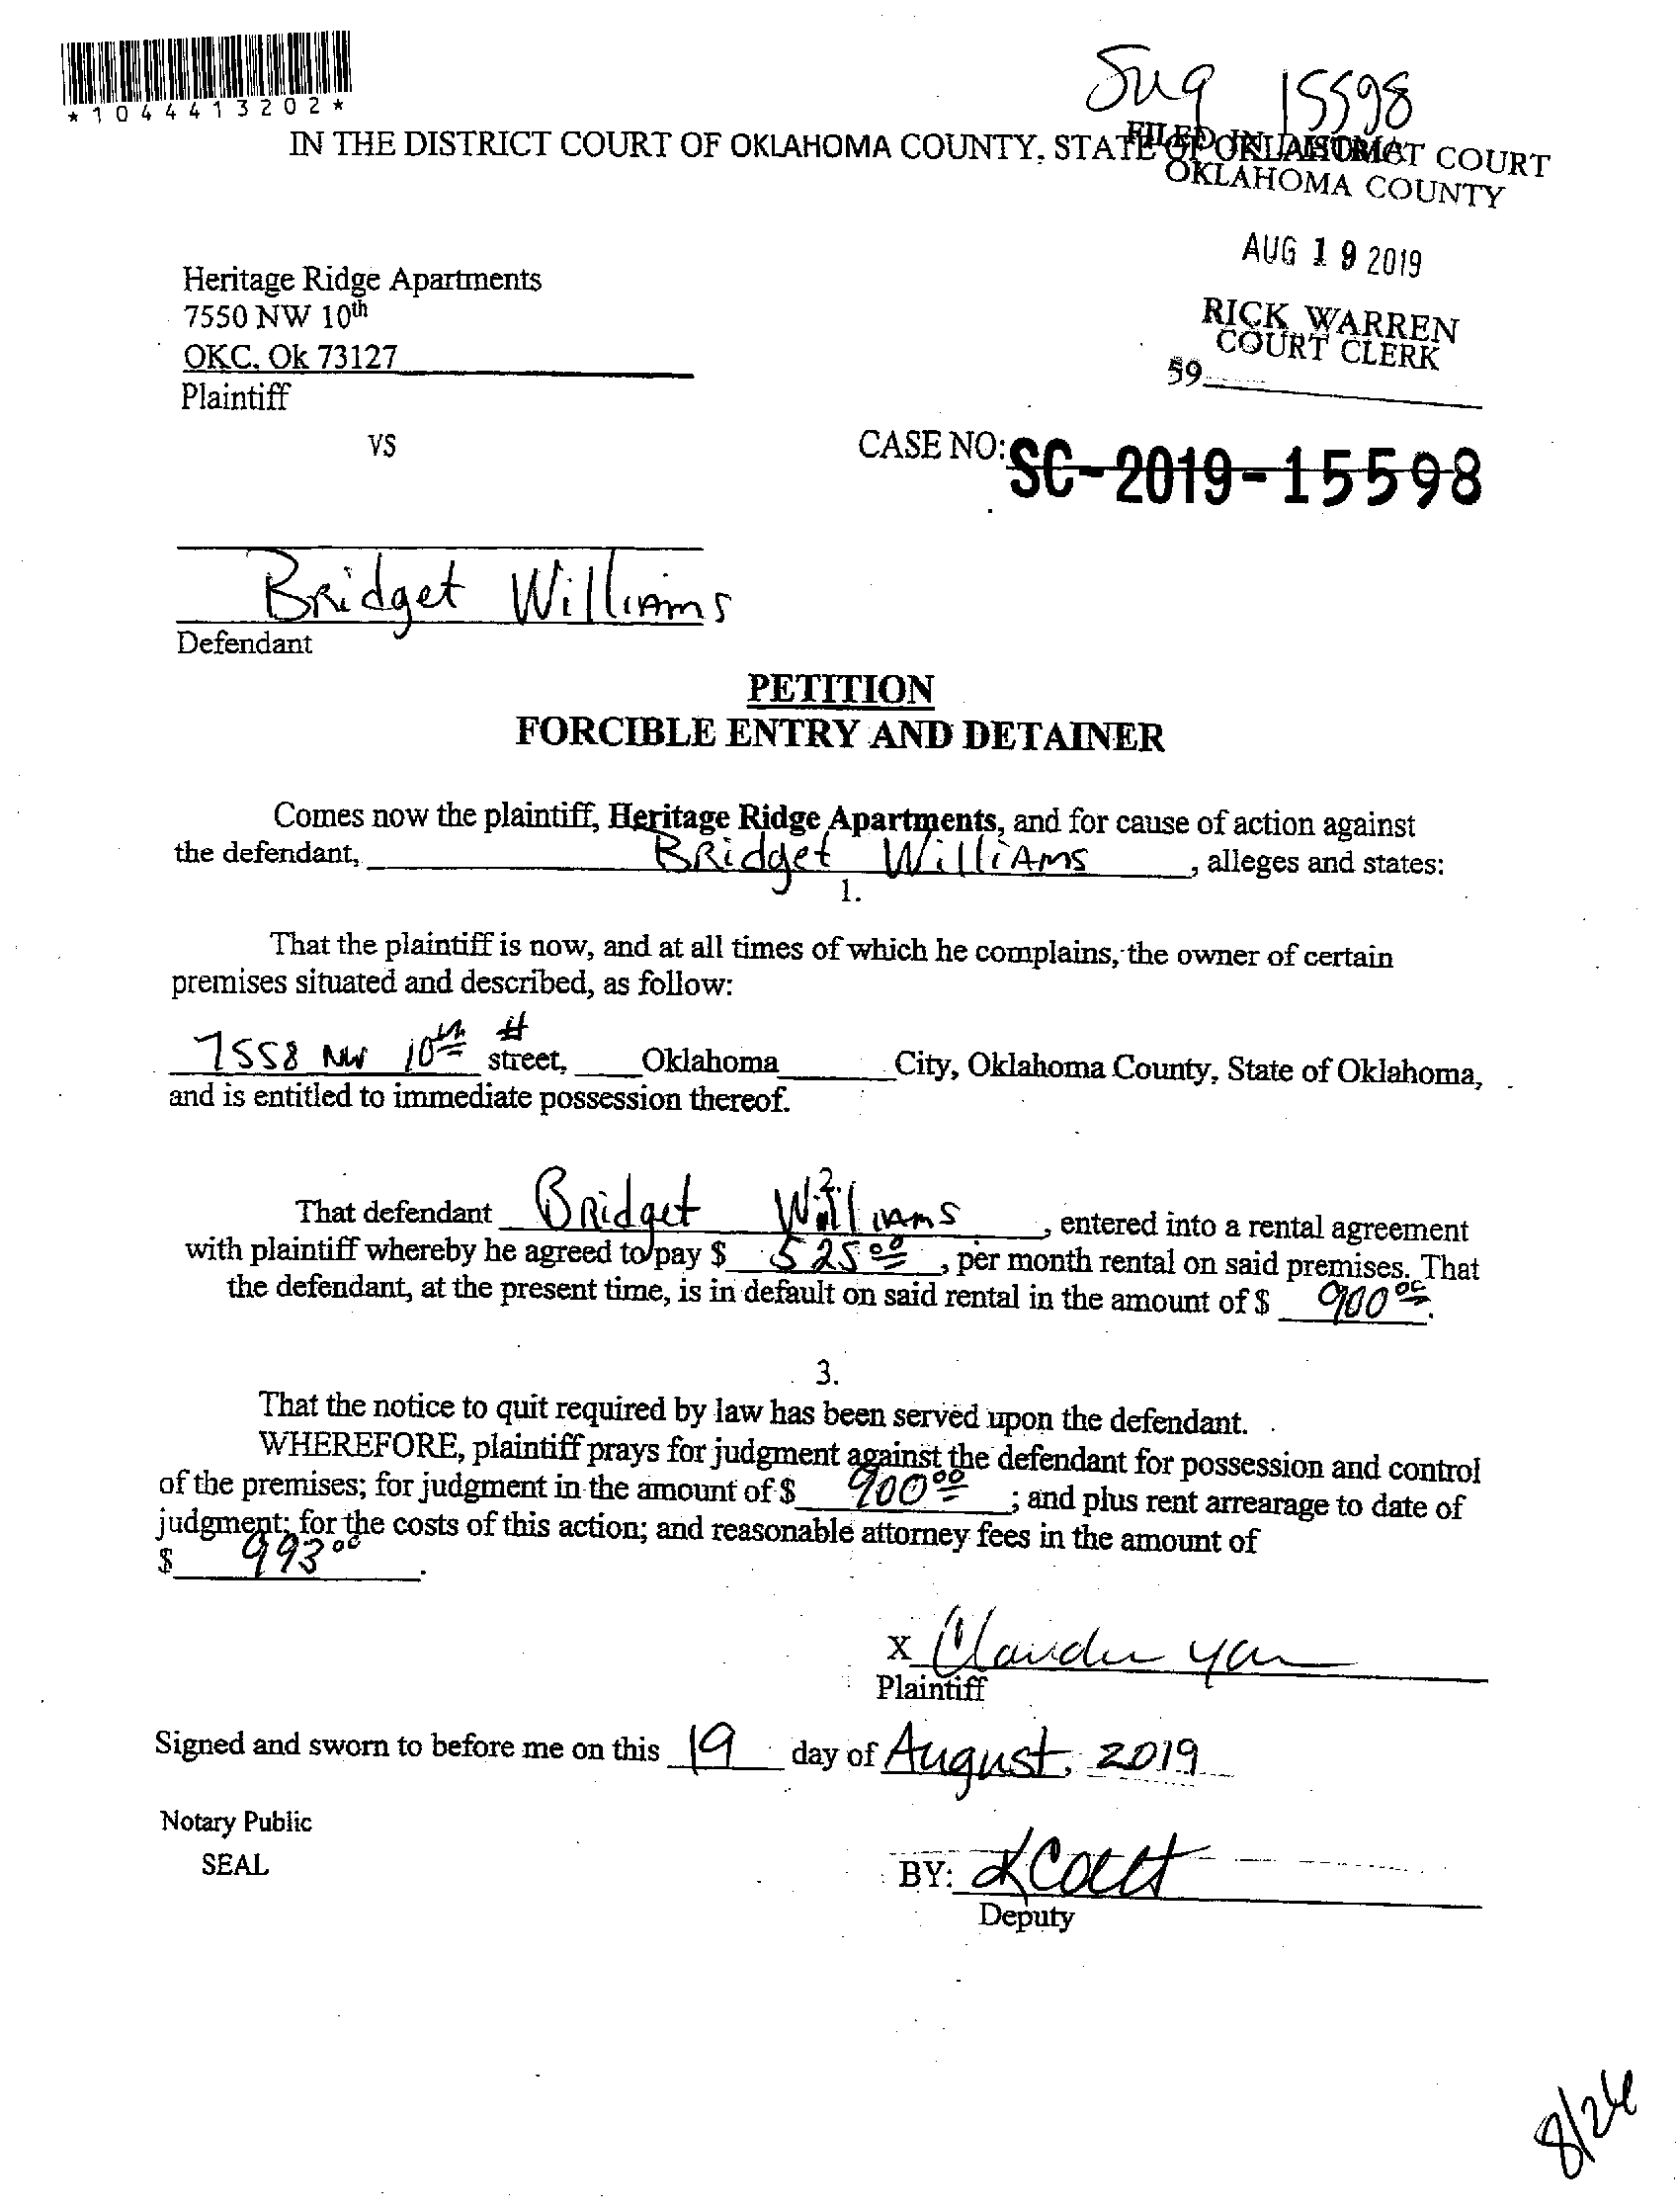 *1044413202*
Sug 15598
IN THE DISTRICT COURT OF OKLAHOMA COUNTY, STATE OF OKLAHOMA
FILED IN DISTRICT COURT
OKLAHOMA COUNTY
AUG 19 2019
RICK WARREN
COURT CLERK
59
Heritage Ridge Apartments
7550 NW 10th
OKC, Ok 73127
Plaintiff
VS
CASE NO: SC-2019-15598
Bridget Williams
Defendant
PETITION
FORCIBLE ENTRY AND DETAINER
Comes now the plaintiff, Heritage Ridge Apartments, and for cause of action against
the defendant, Bridget Williams, alleges and states:
1.
That the plaintiff is now, and at all times of which he complains, the owner of certain
premises situated and described, as follow:
7558 NW 10th # street, Oklahoma City, Oklahoma County, State of Oklahoma,
and is entitled to immediate possession thereof.
2.
That defendant Bridget Williams, entered into a rental agreement
with plaintiff whereby he agreed to pay $ 525 00, per month rental on said premises. That
the defendant, at the present time, is in default on said rental in the amount of $ 900 00.
3.
That the notice to quit required by law has been served upon the defendant.
WHEREFORE, plaintiff prays for judgment against the defendant for possession and control
of the premises; for judgment in the amount of $ 900 00; and plus rent arrearage to date of
judgment; for the costs of this action; and reasonable attorney fees in the amount of
$ 993 00.
X
Plaintiff
Signed and sworn to before me on this 19 day of August, 2019
Notary Public
SEAL
BY:
Deputy